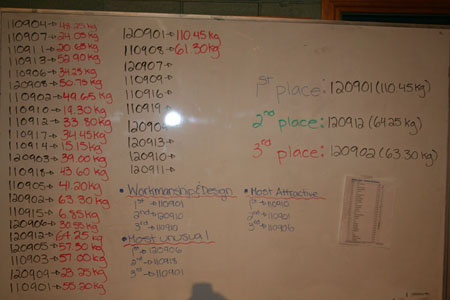 110904→48.25kg
110907→24.05kg
110911→20.65kg
110913→52.90kg
110906→34.25kg
120908→50.75kg
110902→49.65kg
110910→19.30kg
110912→33.80kg
110917→34.45kg
110914→15.15kg
120903→39.00kg
110918→43.60kg
110905→41.20kg
120902→63.30kg
110915→6.35kg
120906→30.55kg
120912→64.25kg
120905→57.30kg
110903→57.00kg
120904→23.25kg
110901→55.20kg
120901→110.45kg
110908→61.30kg
120907→
110909→
110916→
110919→
12090
120913→
120910→
120911→
1st place: 120901 (110.45kg)
2nd place: 120912 (64.25kg)
3rd place: 120902 (63.30kg)
• Workmanship & Design
1st→110901
2nd→120910
3rd→110912
• Most unusual
1st→120906
2nd→110918
3rd→110901
• Most Attractive
1st→110910
2nd→110901
3rd→110906